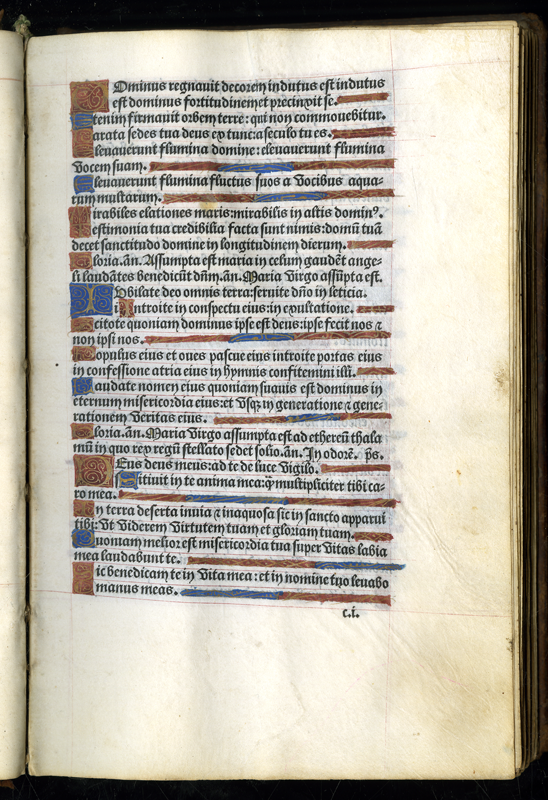 Dominus regnauit decorem indutus est indutus
est dominus fortitudinem et precinxit se.
Etenim firmauit orbem terre: qui non commouebitur.
Parata sedes tua deus ex tunc: a seculo tu es.
Eleuauerunt flumina domine: eleuauerunt flumina
vocem suam.
Eleuauerunt flumina fluctus suos a vocibus aqua-
rum multarum.
Mirabiles elationes maris: mirabilis in altis dominꝰ.
Testimonia tua credibilia facta sunt nimis: domū tuā
decet sanctitudo domine in longitudinem dierum.
Gloria. añ. Assumpta est maria in celum gaudēt ange-
li laudātes benedicūt dñm. añ. Maria virgo assūpta est.
Iubilate deo omnis terra: seruite dño in leticia.
Introite in conspectu eius: in exultatione.
Scitote quoniam dominus ipse est deus: ipse fecit nos ⁊
non ipsi nos.
Populus eius et oues pascue eius introite portas eius
in confessione atria eius in hymnis confitemini illi.
Laudate nomen eius quoniam suauis est dominus in
eternum misericordia eius: et vsqꝫ in generatione ⁊ gene-
rationem veritas eius.
Gloria. añ. Maria virgo assumpta est ad ethereū thala
mū in quo rex regū stellato sedet solio. añ. In odorē. p̄s.
Deus deus meus: ad te de luce vigilo.
Sitiuit in te anima mea: q̄ multipliciter tibi ca-
ro mea.
In terra deserta inuia ⁊ inaquosa sic in sancto apparui
tibi: vt viderem virtutem tuam et gloriam tuam.
Quoniam melior est misericordia tua super vitas labia
mea laudabunt te.
Sic benedicam te in vita mea: et in nomine tuo leuabo
manus meas.
c.i.